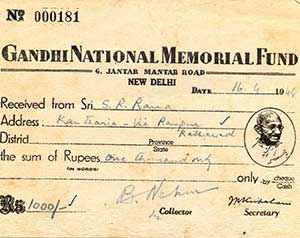 No 000181
GANDHI NATIONAL MEMORIAL FUND
6, JANTAR MANTAR ROAD
NEW DELHI
DATE 16.4.194
Received from Sri S. R. Rana
Address: Kantharia - Via Ranpur
District Province State Kathiawad
the sum of Rupees one thousand only
(IN WORDS)
only by cheque Cash
Rs 1000/-
Collector Secretary